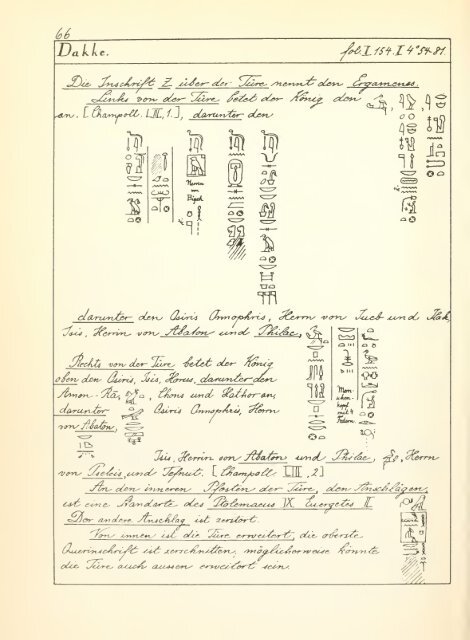 66
Dakke. fol. I 154. I 4° 54. 81.
Die Inschrift Z über der Türe nennt den Ergamenes.
Links von der Türe betet der König den
an. [Champoll. LII, 1.], darunter den
Herrin
von
Bigeh
darunter den Osiris Onnophris, Herrn von Tueb und Hak,
Isis, Herrin von Abaton und Philae,
Rechts von der Türe betet der König
oben den Osiris, Isis, Horus, darunter den
Amon-Ra, Chons und Hathor an,
darunter Osiris Onnophris, Herrn
von Abaton,
Men-
schen
kopf
mit 4
Federn
Isis, Herrin von Abaton und Philae, Herrn
von Pselcis, und Tefnut. [Champoll. LIII, 2]
An den inneren Pfosten der Türe, den Anschlägen,
ist eine Standarte des Ptolemaeus IX Euergetes II
Der andere Anschlag ist zerstört.
Von innen ist die Türe erweitert, die oberste
Querinschrift ist zerschnitten, möglicherweise könnte
die Türe auch aussen erweitert sein.